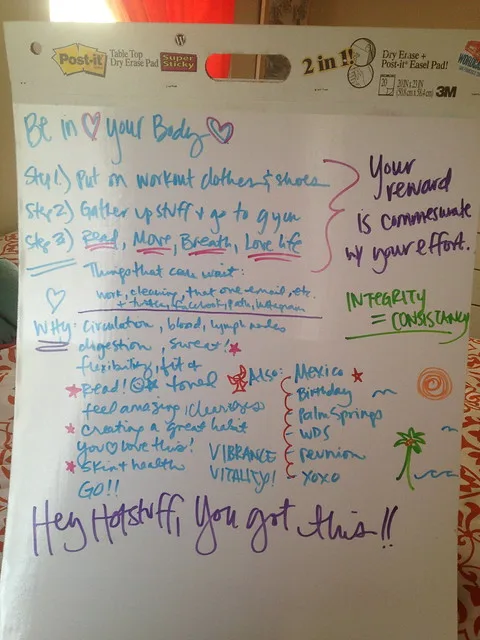 Post-it
Table Top
Dry Erase Pad
Super
Sticky
2 in 1!
Dry Erase +
Post-it® Easel Pad!
20
20 IN x 23 IN
(50.8 cm x 58.4 cm)
3M
Be in your Body
Step 1) Put on workout clothes & shoes
Step 2) Gather up stuff & go to gym
Step 3) Read, Move, Breath, Love life
Your
reward
is commesurate
w/ your effort.
Things that can wait:
work, cleaning, that one email, etc.
+ twitter, facebook, path, instagram
INTEGRITY
= CONSISTANCY
WHY: circulation, blood, lymph nodes
digestion, sweat!
flexibility, fit &
Read! toned
feel amazing, clearness
creating a great habit
you love this!
Skin + health
GO!!
VIBRANCE
VITALITY!
Also:
Mexico
Birthday
Palm Springs
WDS
reunion
xoxo
Hey Hotstuff, You got this!!